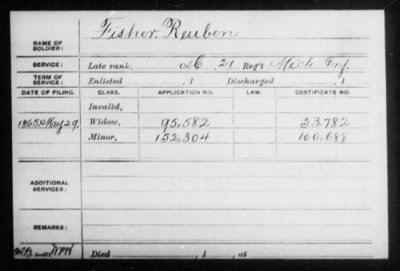 Fisher, Reuben
NAME OF SOLDIER:
SERVICE: Late rank, Co. C, 21 Reg't Mich Inf.
TERM OF SERVICE: Enlisted , 1 Discharged , 1
DATE OF FILING. CLASS. APPLICATION NO. LAW. CERTIFICATE NO.
Invalid,
1865 May 29. Widow, 95,582 53,782
Minor, 152,304 100,688
ADDITIONAL SERVICES:
REMARKS:
Died , 1 , at